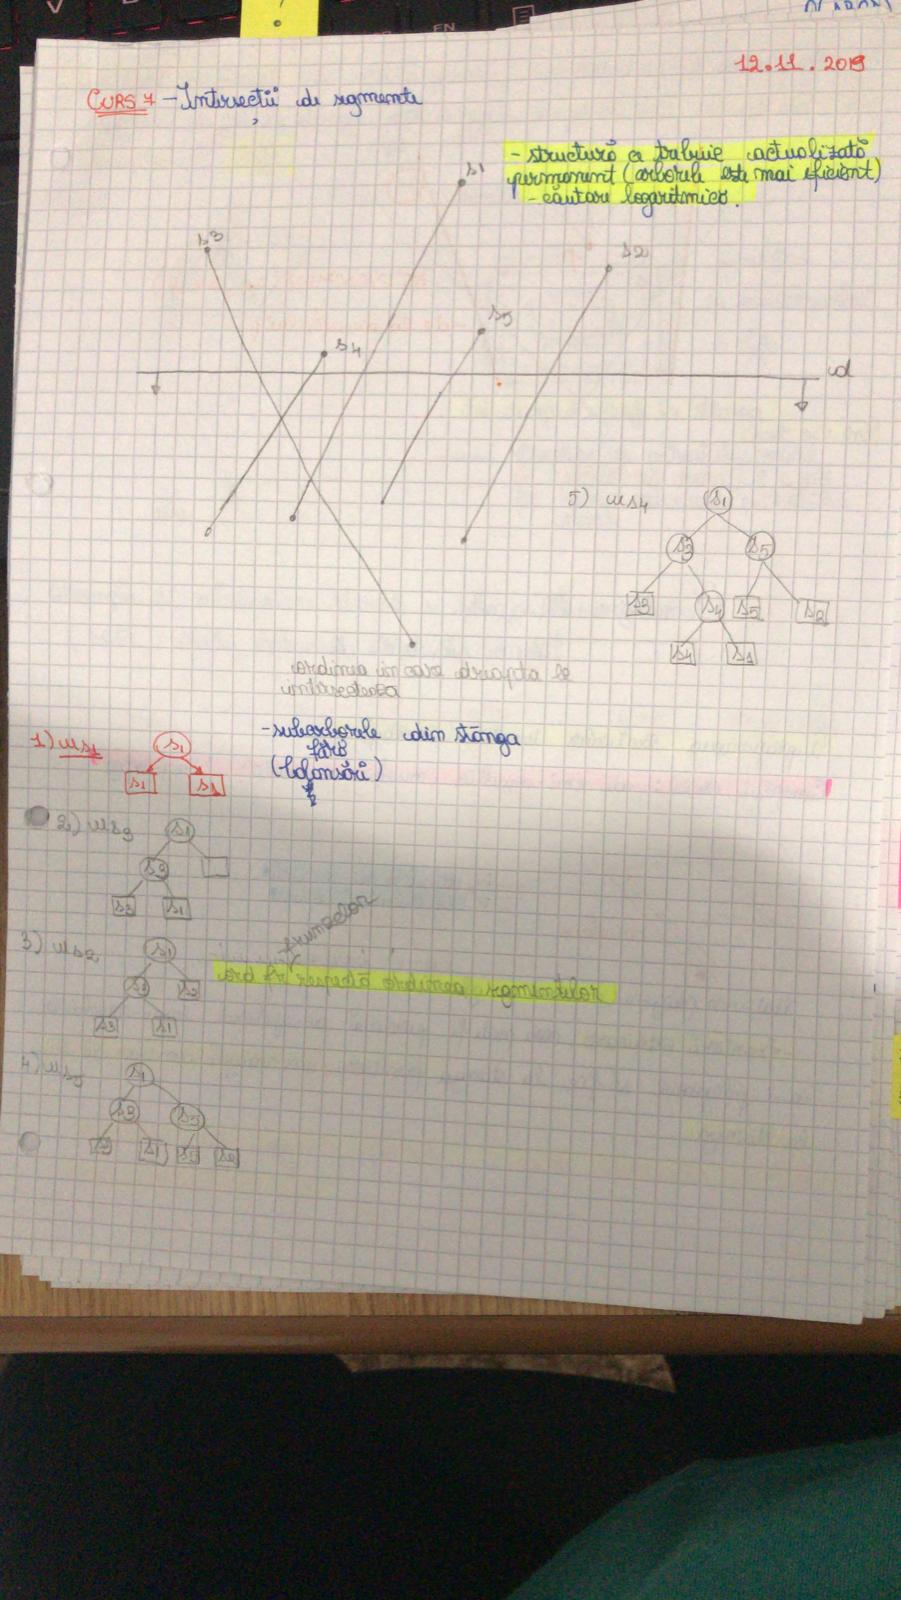 12.11.2019
CURS 7 - Intersecții de segmente
- structură ce trebuie actualizată
permanent (arborele este mai eficient)
- căutare logaritmică.
s1
s3
s2
s5
s4
d
5) us4
s1
s3 s5
s3 s4 s5 s2
s4 s1
ordinea în care dreapta le
intersectează
1) us1
s1
s1 s1
- subarborele din stânga
fără
(balansări)
2) us3
s1
s3
s3 s1
3) us2
s1
s3 s2
s3 s1
frunzelor
ordinea segmentelor
4) us5
s1
s3 s5
s3 s1 s5 s2